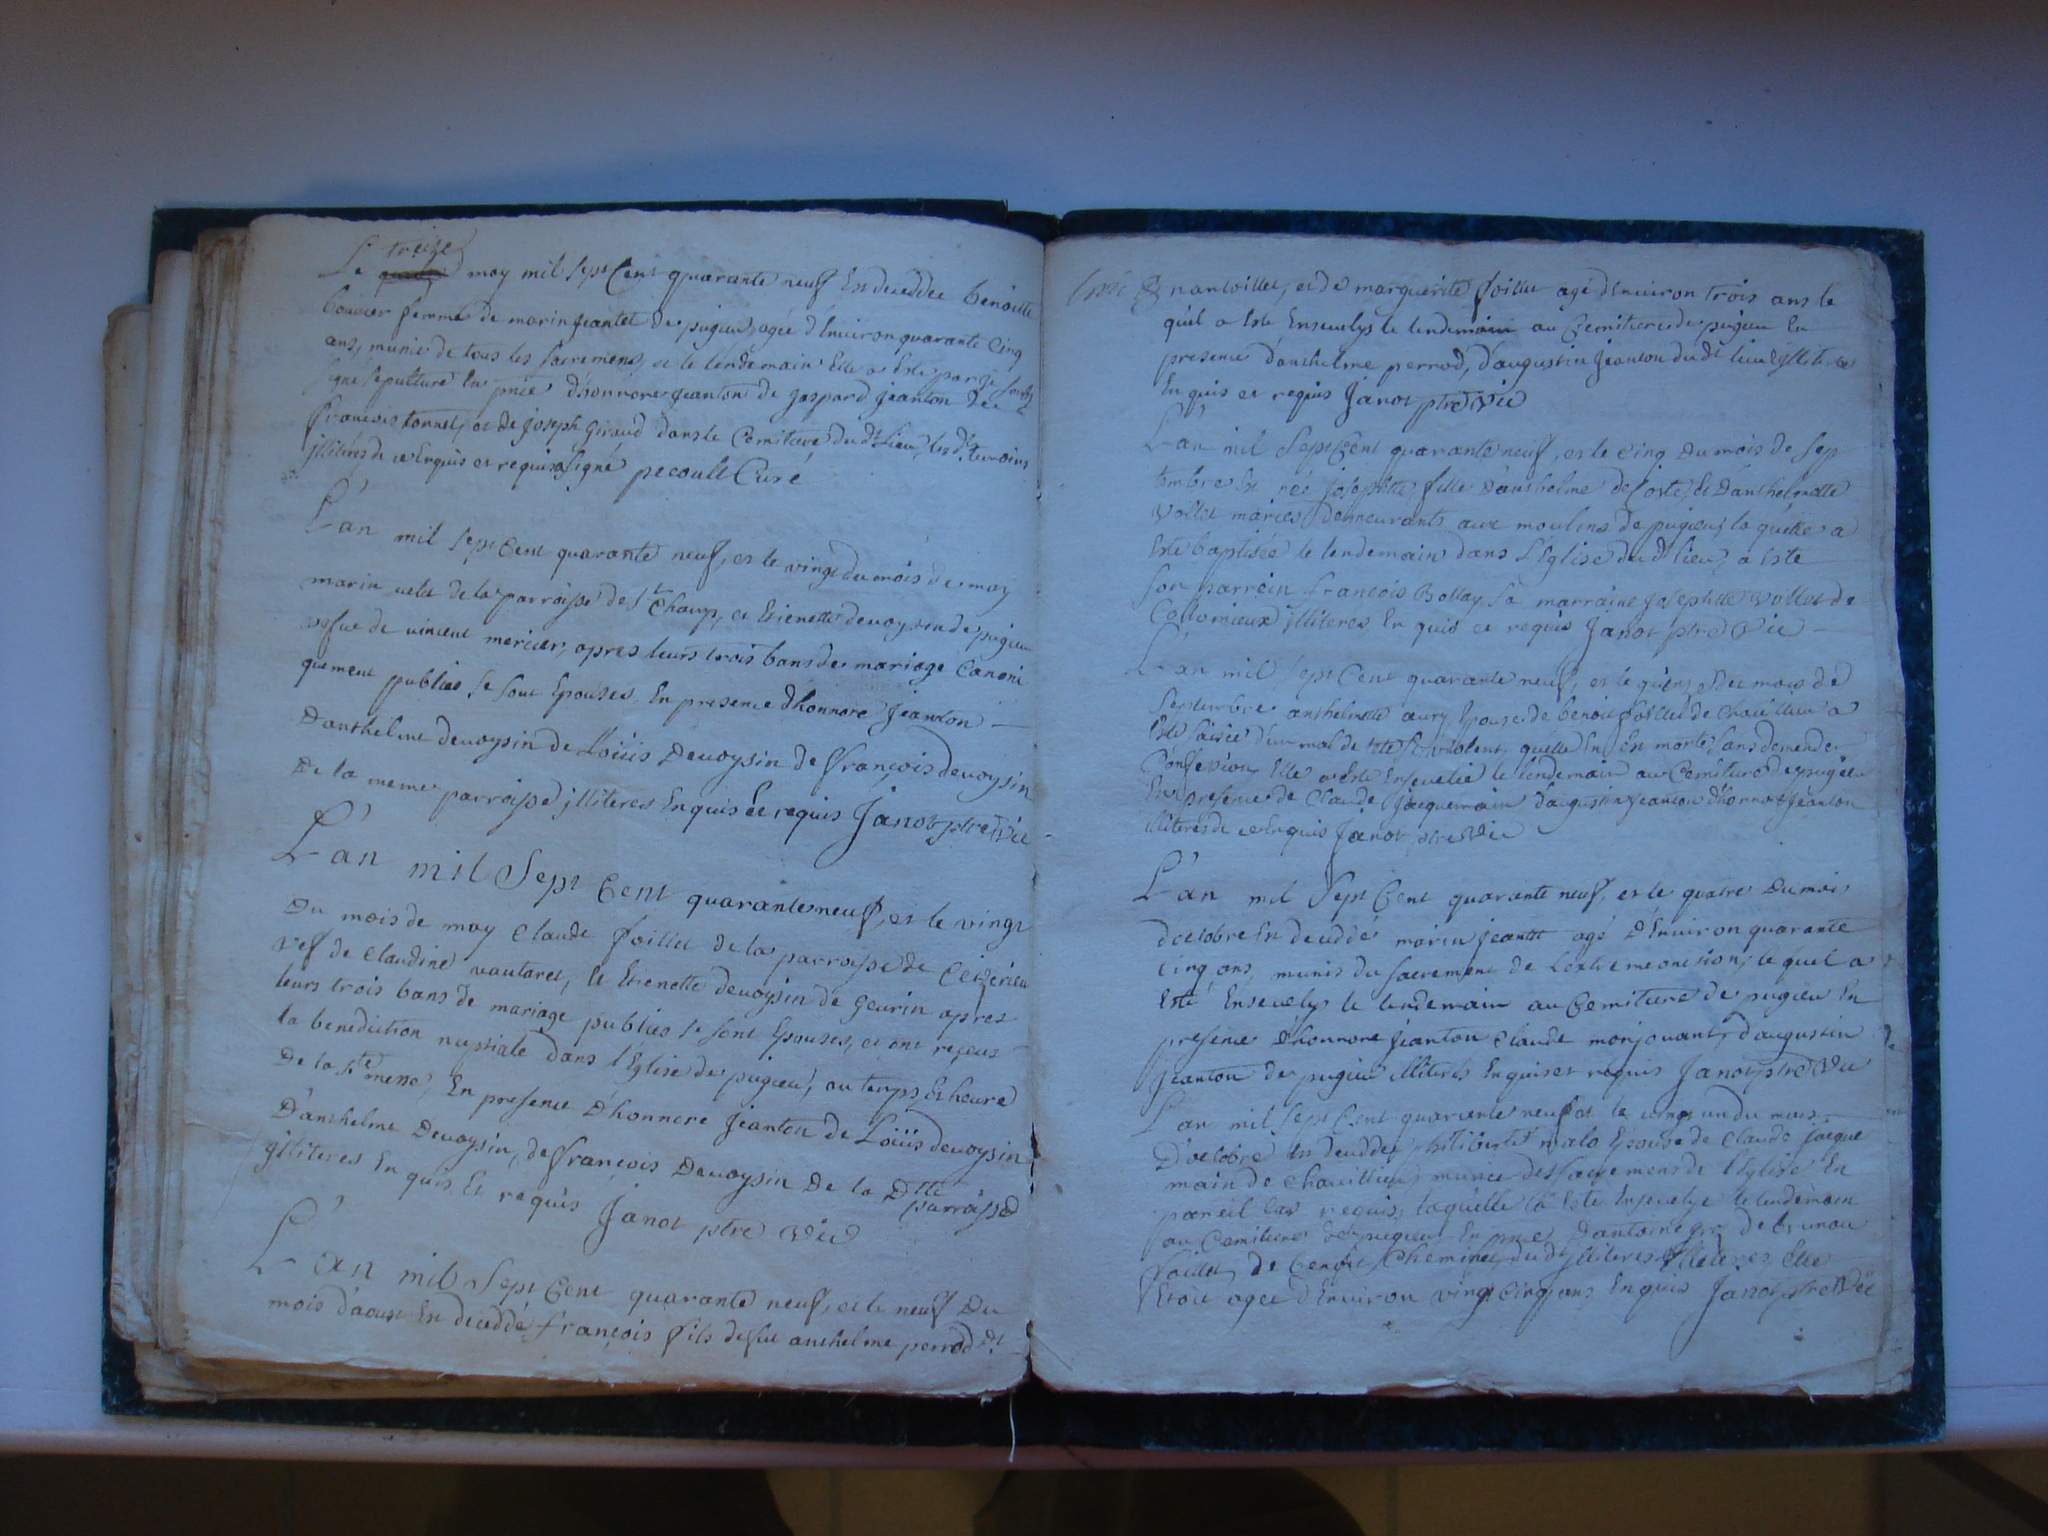 treize
Le moy mil sept Cent quarante neuf En deceddee benoitte
bouvier femme de marin jeantet de pugieu, agée d'Environ quarante Cinq
ans, munie de tous les sacremens, et le lendemain Elle a Esté par je soub
signé sepulturé En pñce d'honnore jeanton de gaspard jeanton de
françois tonnet, et de joseph giraud dans le Cemitiere du dt Lieu, les dts temoins
jlliteres de ce Enquis et requis signé pecoult Curé
L'an mil sept Cent quarante neuf, et le vingt du mois de may
marin de la parroisse de st Champ, et Etienette devoysin de pugieu
vefve de vincent mercier, apres leurs trois bans de mariage Canoni
quement publies se sont Epouses, En presence d'honnore jeanton
Danthelme devoysin de Loüis Devoysin de françois devoysin
De la meme parroisse jlliteres Enquis et requis Janot ptre Vic
L'an mil Sept Cent quarante neuf, et le vingt
Du mois de may Claude foillet de la parroisse de Ceizerieu
vef de Claudine vautaret, et Etienette devoysin de geurin apres
leurs trois bans de mariage publies se sont Epouses, et ont reçeus
la benediction nuptiale dans l'Eglise de pugieu, au temps, Et heure
De la ste messe, En presence D'honnore jeanton de Loüis devoysin
D'anthelme Devoysin, de françois Devoysin De la Dtte parroisse
jlliteres En quis Et requis Janot ptre Vic
L'an mil Sept Cent quarante neuf, et le neuf Du
mois d'aoust En deceddé françois fils de feu anthelme perrod dt
nantoillet, et de marguerite foillet agé d'Environ trois ans le
quel a Esté Ensevelys le lendemain au Cemitiere de pugieu En
presence d'anthelme perrod, d'augustin jeanton du dt lieu jlliteres
En quis et requis Janot ptre Vic
L'an mil Sept Cent quarante neuf, et le Cinq Du mois de sep
tembre Est née josephtte fille D'anthelme decoste Et D'anthelmette
vollet maries Demeurants aux moulins de pugieu, la quelle a
Este baptisée le lendemain dans L'Eglise du dt lieu, a Este
son parrein françois Bollay sa marraine josephtte vollet de
Collomieux jlliteres En quis et requis Janot ptre Vic
L'an mil sept Cent quarante neuf, et le quinze Du mois de
Septembre anthelmette aury Epouse de benoit foillet de Chavillieu a
Este saisie d'un mal de tete si violent quelle En En morte sans demander
Confession, Elle a Este Ensevelie le lendemain au Cemitiere de pugieu
En presence de Claude jacquemain d'augustin jeanton d'honnore jeanton
jlliteres de ce Enquis Janot ptre Vic
L'an mil Sept Cent quarante neuf, et le quatre Du mois
d'octobre En deceddé marin jeantet agé d'Environ quarante
Cinq ans, munis du sacrement de L'extremeonction, le quel a
Esté Ensevelys le lendemain au Cemitiere de pugieu En
presence d'honnore jeanton Claude monjouant, d'augustin
jeanton de pugieu jlliteres Enquis et requis Janot ptre Vic
L'an mil sept Cent quarante neuf et le vingt un du mois
D'octobre En deceddée philiberte malo Epouse de Claude jacque
main de Chavillieu, munie des sacremens de l'Eglise En
pareil Cas requis, laquelle a Este Ensevelye le lendemain
au Cemitiere de pugieu En pñce d'antoine de brunau
foillet, de benoit Cheminet du dt jlliteres Elle
Etoit agee d'Environ vingt Cinq ans Enquis Janot ptre Vic